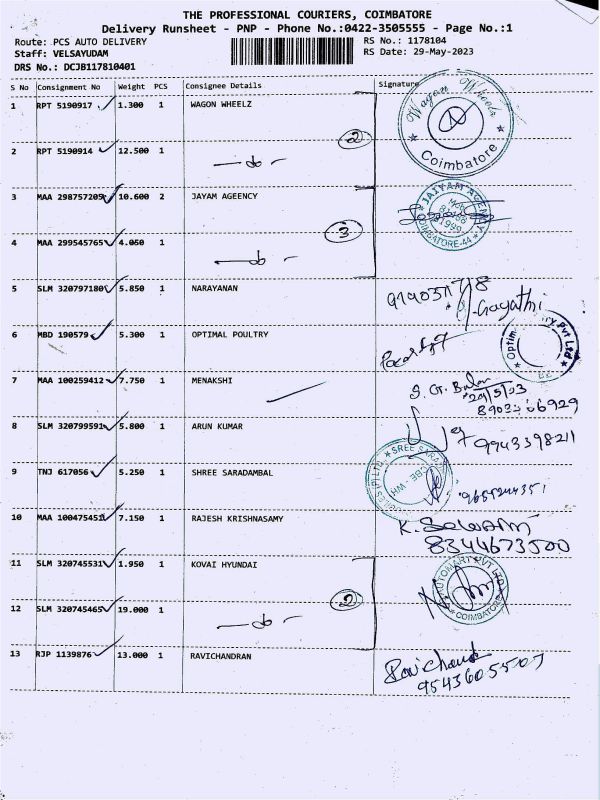 THE PROFESSIONAL COURIERS, COIMBATORE
Delivery Runsheet - PNP - Phone No.:0422-3505555 - Page No.:1
Route: PCS AUTO DELIVERY RS No.: 1178104
Staff: VELSAYUDAM RS Date: 29-May-2023
DRS No.: DCJB117810401
S No Consignment No Weight PCS Consignee Details Signature
1 RPT 5190917 1.300 1 WAGON WHEELZ
Wagon Wheels Coimbatore
2
2 RPT 5190914 12.500 1 —do—
3 MAA 298757209 10.600 2 JAYAM AGEENCY
JAIYAM AGENCY COIMBATORE-44
3
4 MAA 299545765 4.050 1 —do—
5 SLM 320797180 5.850 1 NARAYANAN
Gayathri
6 MBD 190579 5.300 1 OPTIMAL POULTRY
Pvt Ltd
7 MAA 100259412 7.750 1 MENAKSHI
29/5/23
8 SLM 320799591 5.800 1 ARUN KUMAR
9943398211
9 TNJ 617056 5.250 1 SHREE SARADAMBAL
10 MAA 100475451 7.150 1 RAJESH KRISHNASAMY
8344673500
11 SLM 320745531 1.950 1 KOVAI HYUNDAI
AUTOMART PVT LTD COIMBATORE
2
12 SLM 320745465 19.000 1 —do—
13 RJP 1139876 13.000 1 RAVICHANDRAN
Ravichand
9543605507